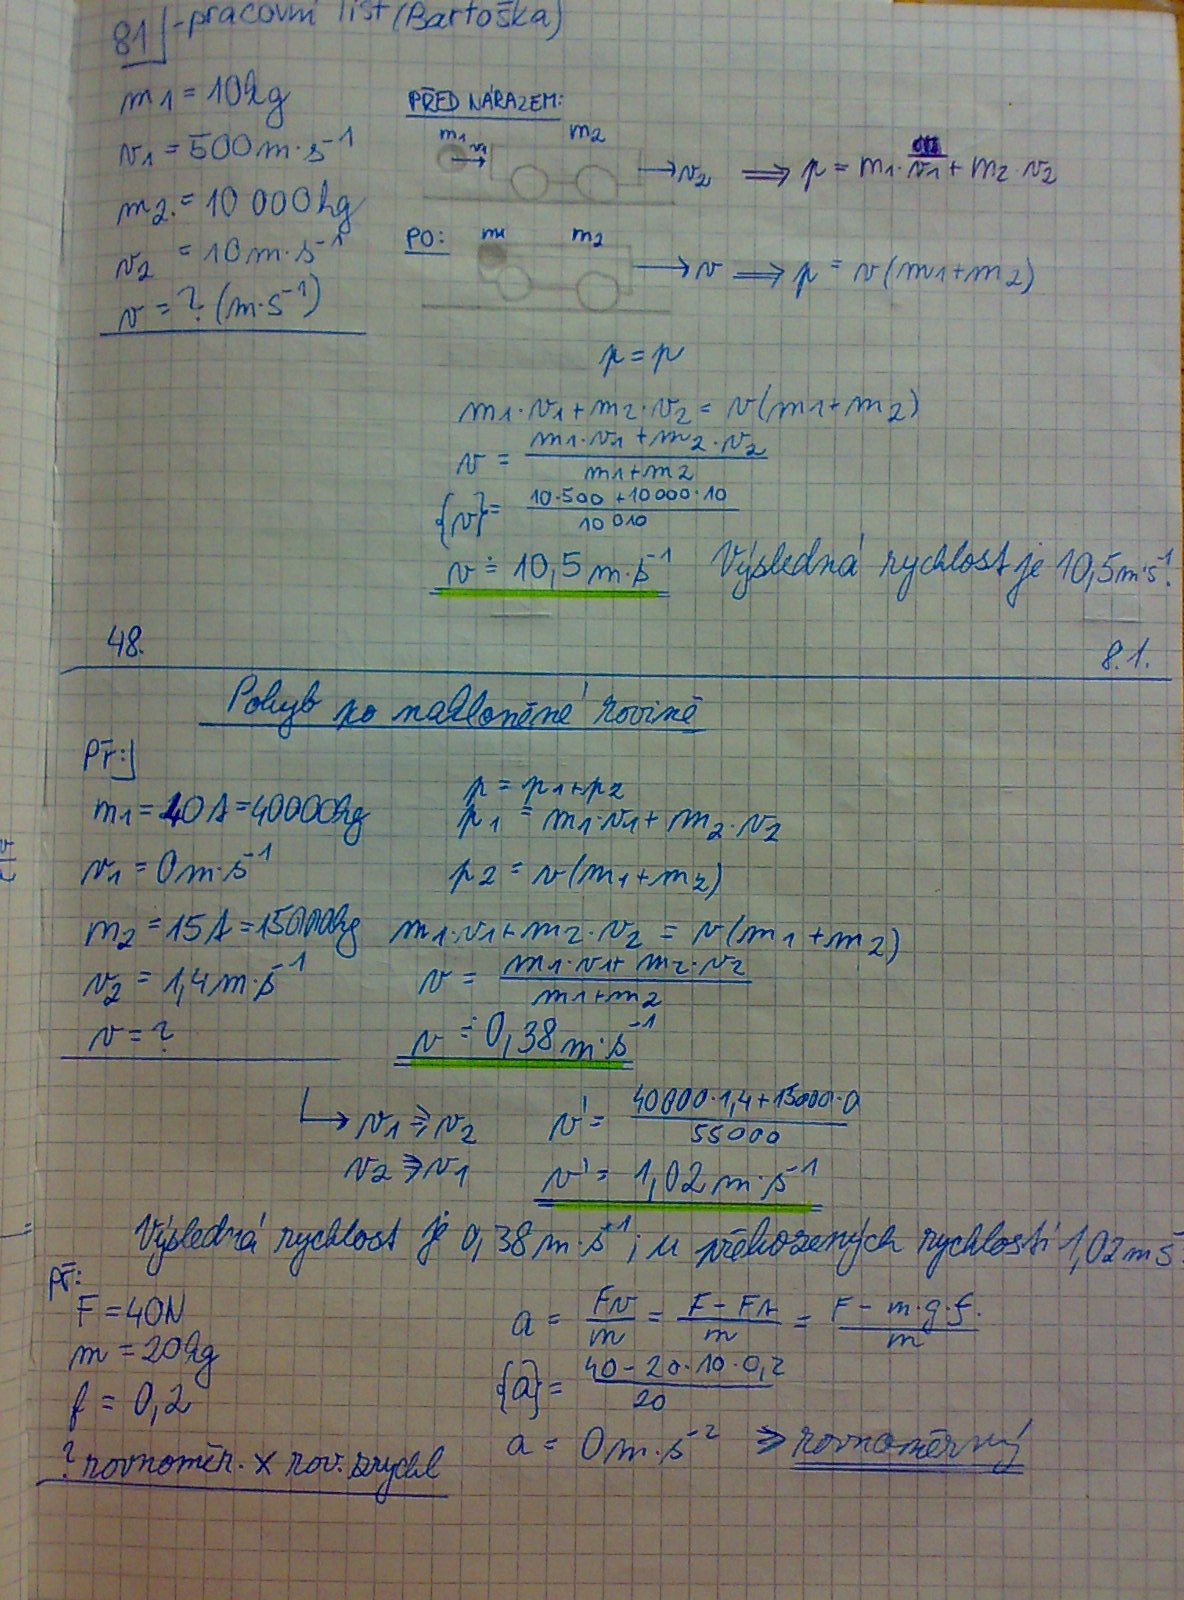 81 - pracovní list (Bartoška)
m1 = 10kg
v1 = 500 m·s⁻¹
m2 = 10 000 kg
v2 = 10 m·s⁻¹
v = ? (m·s⁻¹)
PŘED NÁRAZEM:
m1 v1 m2
→ v2 ⟹ p = m1·v1 + m2·v2
PO: m1 m2
→ v ⟹ p = v(m1+m2)
p = p
m1·v1 + m2·v2 = v(m1+m2)
v = (m1·v1 + m2·v2)/(m1+m2)
{v} = (10·500 + 10000·10)/(10 010)
v ≐ 10,5 m·s⁻¹ Výsledná rychlost je 10,5 m·s⁻¹.
48. 8.1.
Pohyb po nakloněné rovině
Př:
m1 = 40t = 40000kg
v1 = 0 m·s⁻¹
m2 = 15t = 15000kg
v2 = 1,4 m·s⁻¹
v = ?
p = p1+p2
p1 = m1·v1 + m2·v2
p2 = v(m1+m2)
m1·v1 + m2·v2 = v(m1+m2)
v = (m1·v1 + m2·v2)/(m1+m2)
v ≐ 0,38 m·s⁻¹
↳ v1 ⇒ v2
v2 ⇒ v1
v' = (40000·1,4 + 15000·0)/55000
v' = 1,02 m·s⁻¹
Výsledná rychlost je 0,38 m·s⁻¹; u přehozených rychlostí 1,02 m s⁻
Př:
F = 40N
m = 20kg
f = 0,2
? rovnoměr. × rov. zrychl
a = Fv/m = (F - Ft)/m = (F - m·g·f)/m
{a} = (40 - 20·10·0,2)/20
a = 0 m·s⁻² ⇒ rovnoměrný